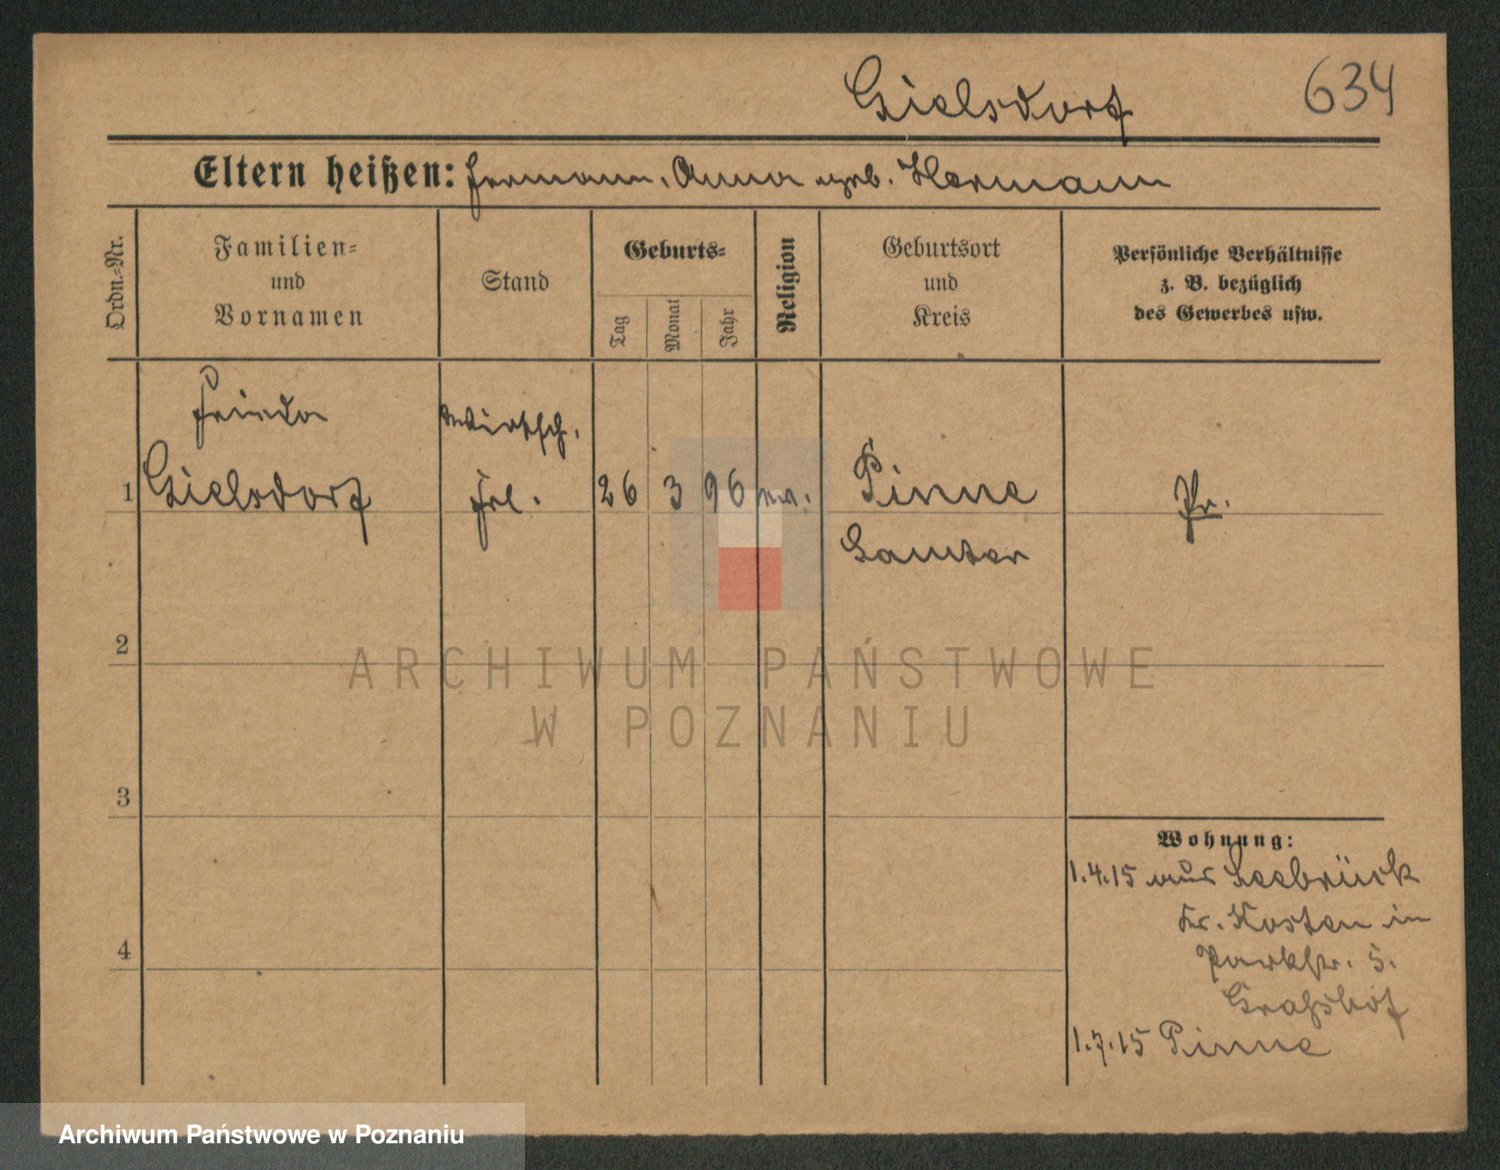 Gielsdorf 634
Eltern heißen: Hermann, Anna geb. Hermann
Ordn.-Nr.
Familien-
und
Vornamen
Stand
Geburts-
Tag
Monat
Jahr
Religion
Geburtsort
und
Kreis
Persönliche Verhältnisse
z. B. bezüglich
des Gewerbes usw.
Frieda
Wirtsch.
1 Gielsdorf Frl. 26 3 96 ev. Pinne Pr.
Samter
2
3
4
Wohnung:
1.4.15 aus Seebrück
Kr. Kosten in
Parkstr. 5.
1.7.15 Pinne
ARCHIWUM PAŃSTWOWE
W POZNANIU
Archiwum Państwowe w Poznaniu